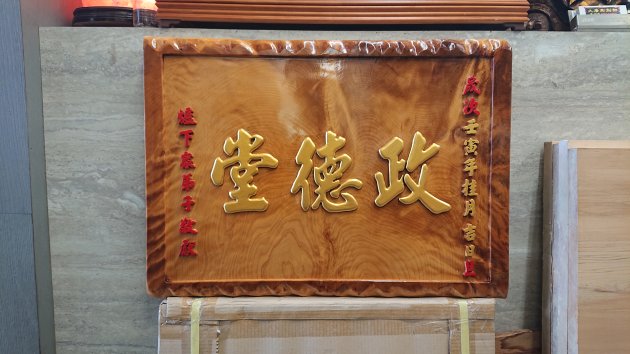 歲次壬寅年桂月吉日立
政德堂
壇下眾弟子敬獻